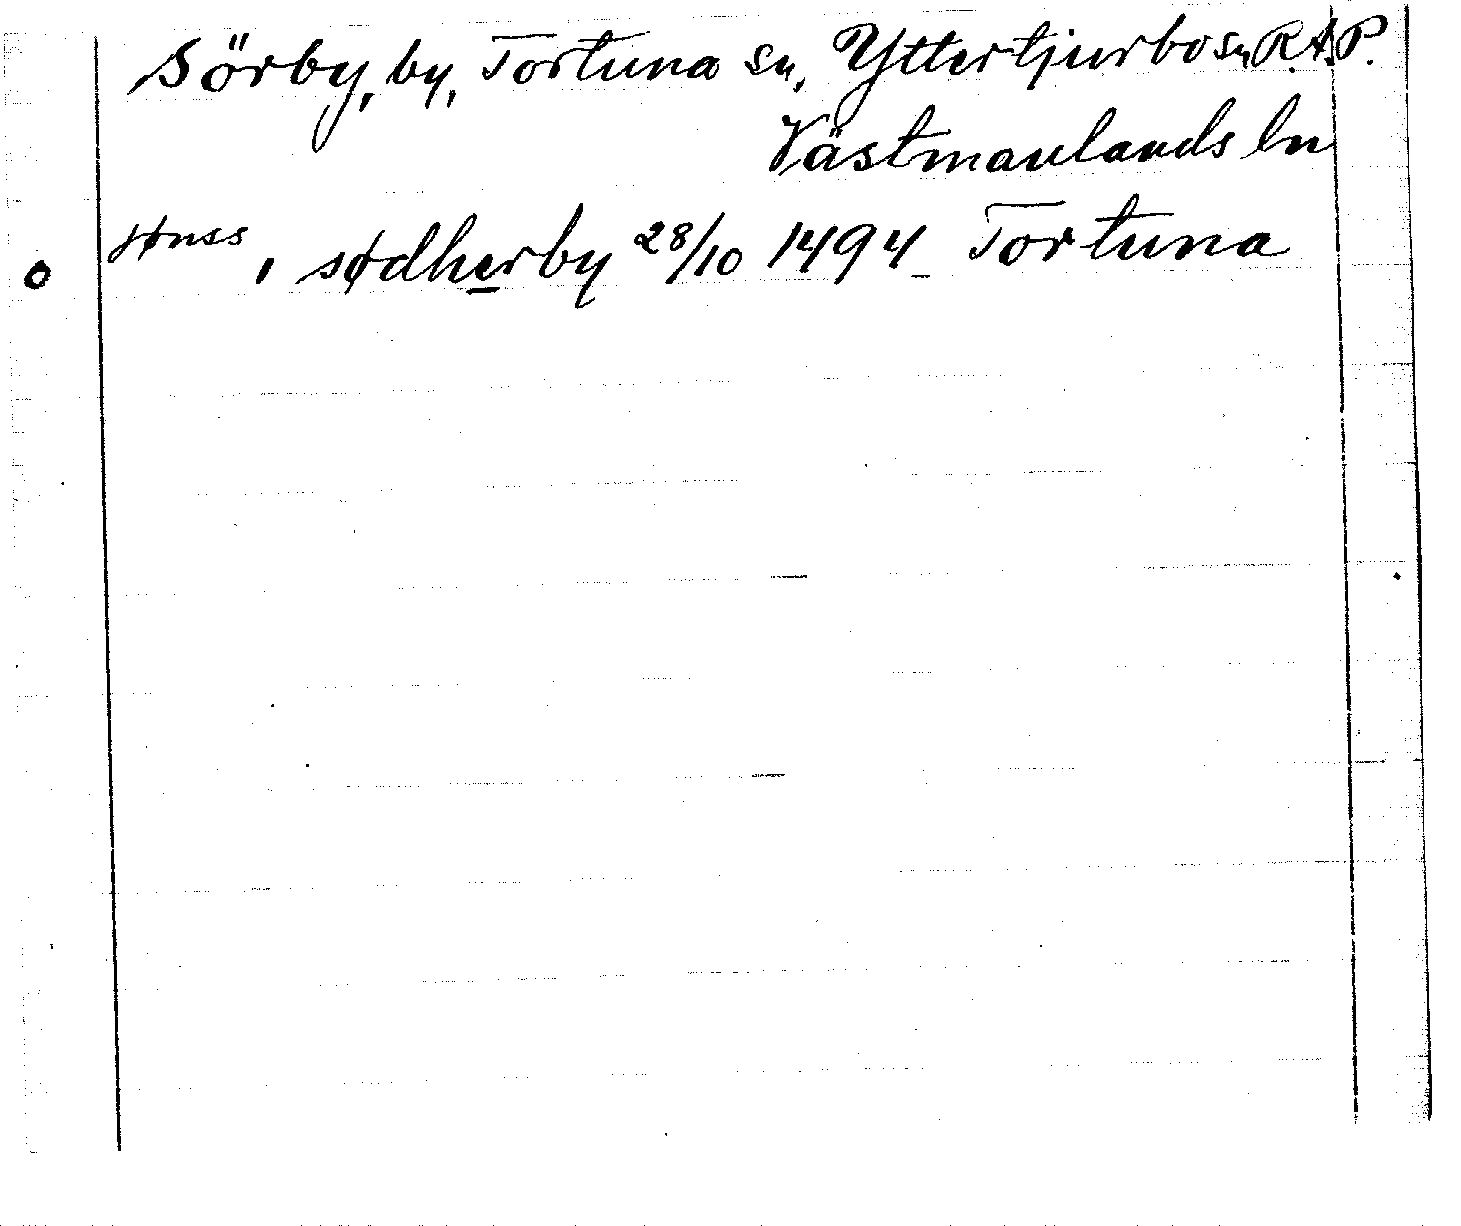 Sörby, by, Tortuna sn, Yttertjurbo sn R.A.P.
Västmanlands ln
jønss, i sødherby 28/10 1494 Tortuna